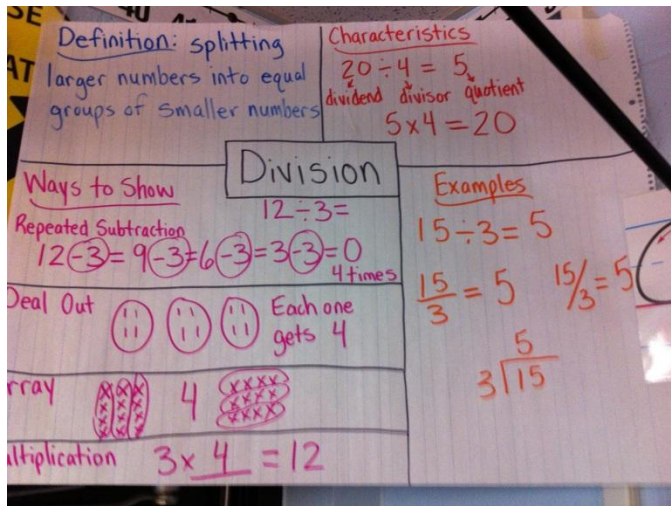 Definition: splitting
larger numbers into equal
groups of smaller numbers
Characteristics
20 ÷ 4 = 5
dividend divisor quotient
5 x 4 = 20
Division
Ways to Show
12 ÷ 3 =
Repeated Subtraction
12 -3 = 9 -3 = 6 -3 = 3 -3 = 0
4 times
Deal Out
Each one
gets 4
rray
xxx
xxx
xxx
xxx
4
xxxx
xxxx
xxxx
ltiplication 3 x 4 = 12
Examples
15 ÷ 3 = 5
15/3 = 5 15/3 = 5
5
3 15